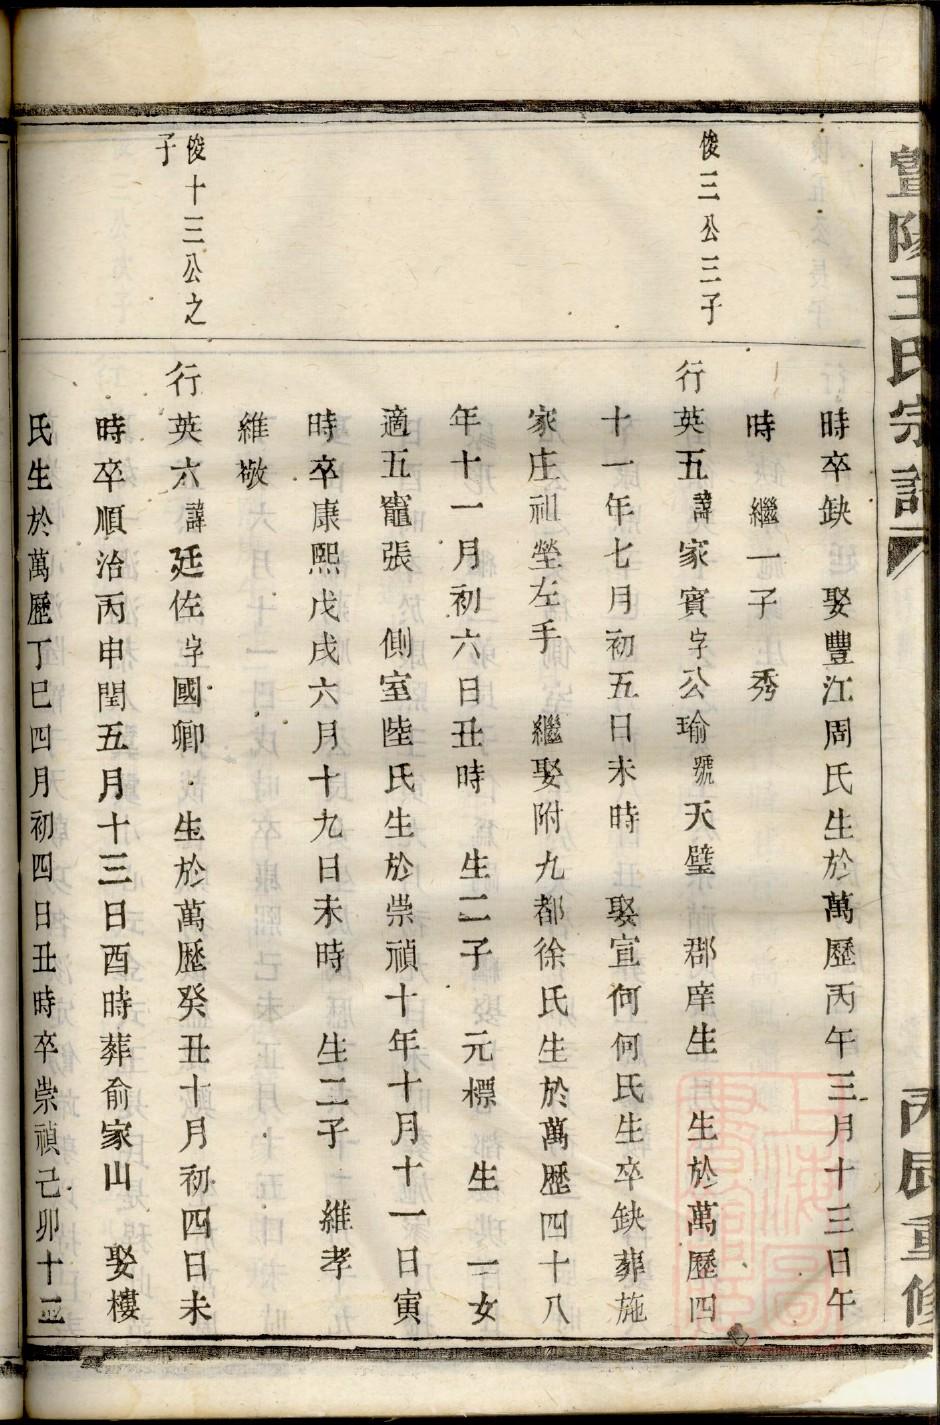 暨陽王氏宗譜
丙辰重修
時卒缺 娶豐江周氏生於萬歷丙午三月十三日午
時 繼一子 秀
俊三公三子
行英五諱家賓字公瑜號天璧 郡庠生 生於萬歷四
十一年七月初五日未時 娶宣何何氏生卒缺葬施
家庄祖塋左手 繼娶附九都徐氏生於萬歷四十八
年十一月初六日丑時 生二子 元標 生一女
適五竈張 側室陸氏生於崇禎十年十月十一日寅
時卒康熙戊戌六月十九日未時 生二子 維孝
維敬
俊十三公之
子
行英六諱廷佐字國卿 生於萬歷癸丑十月初四日未
時卒順治丙申閏五月十三日酉時葬俞家山 娶樓
氏生於萬歷丁巳四月初四日丑時卒崇禎己卯十二